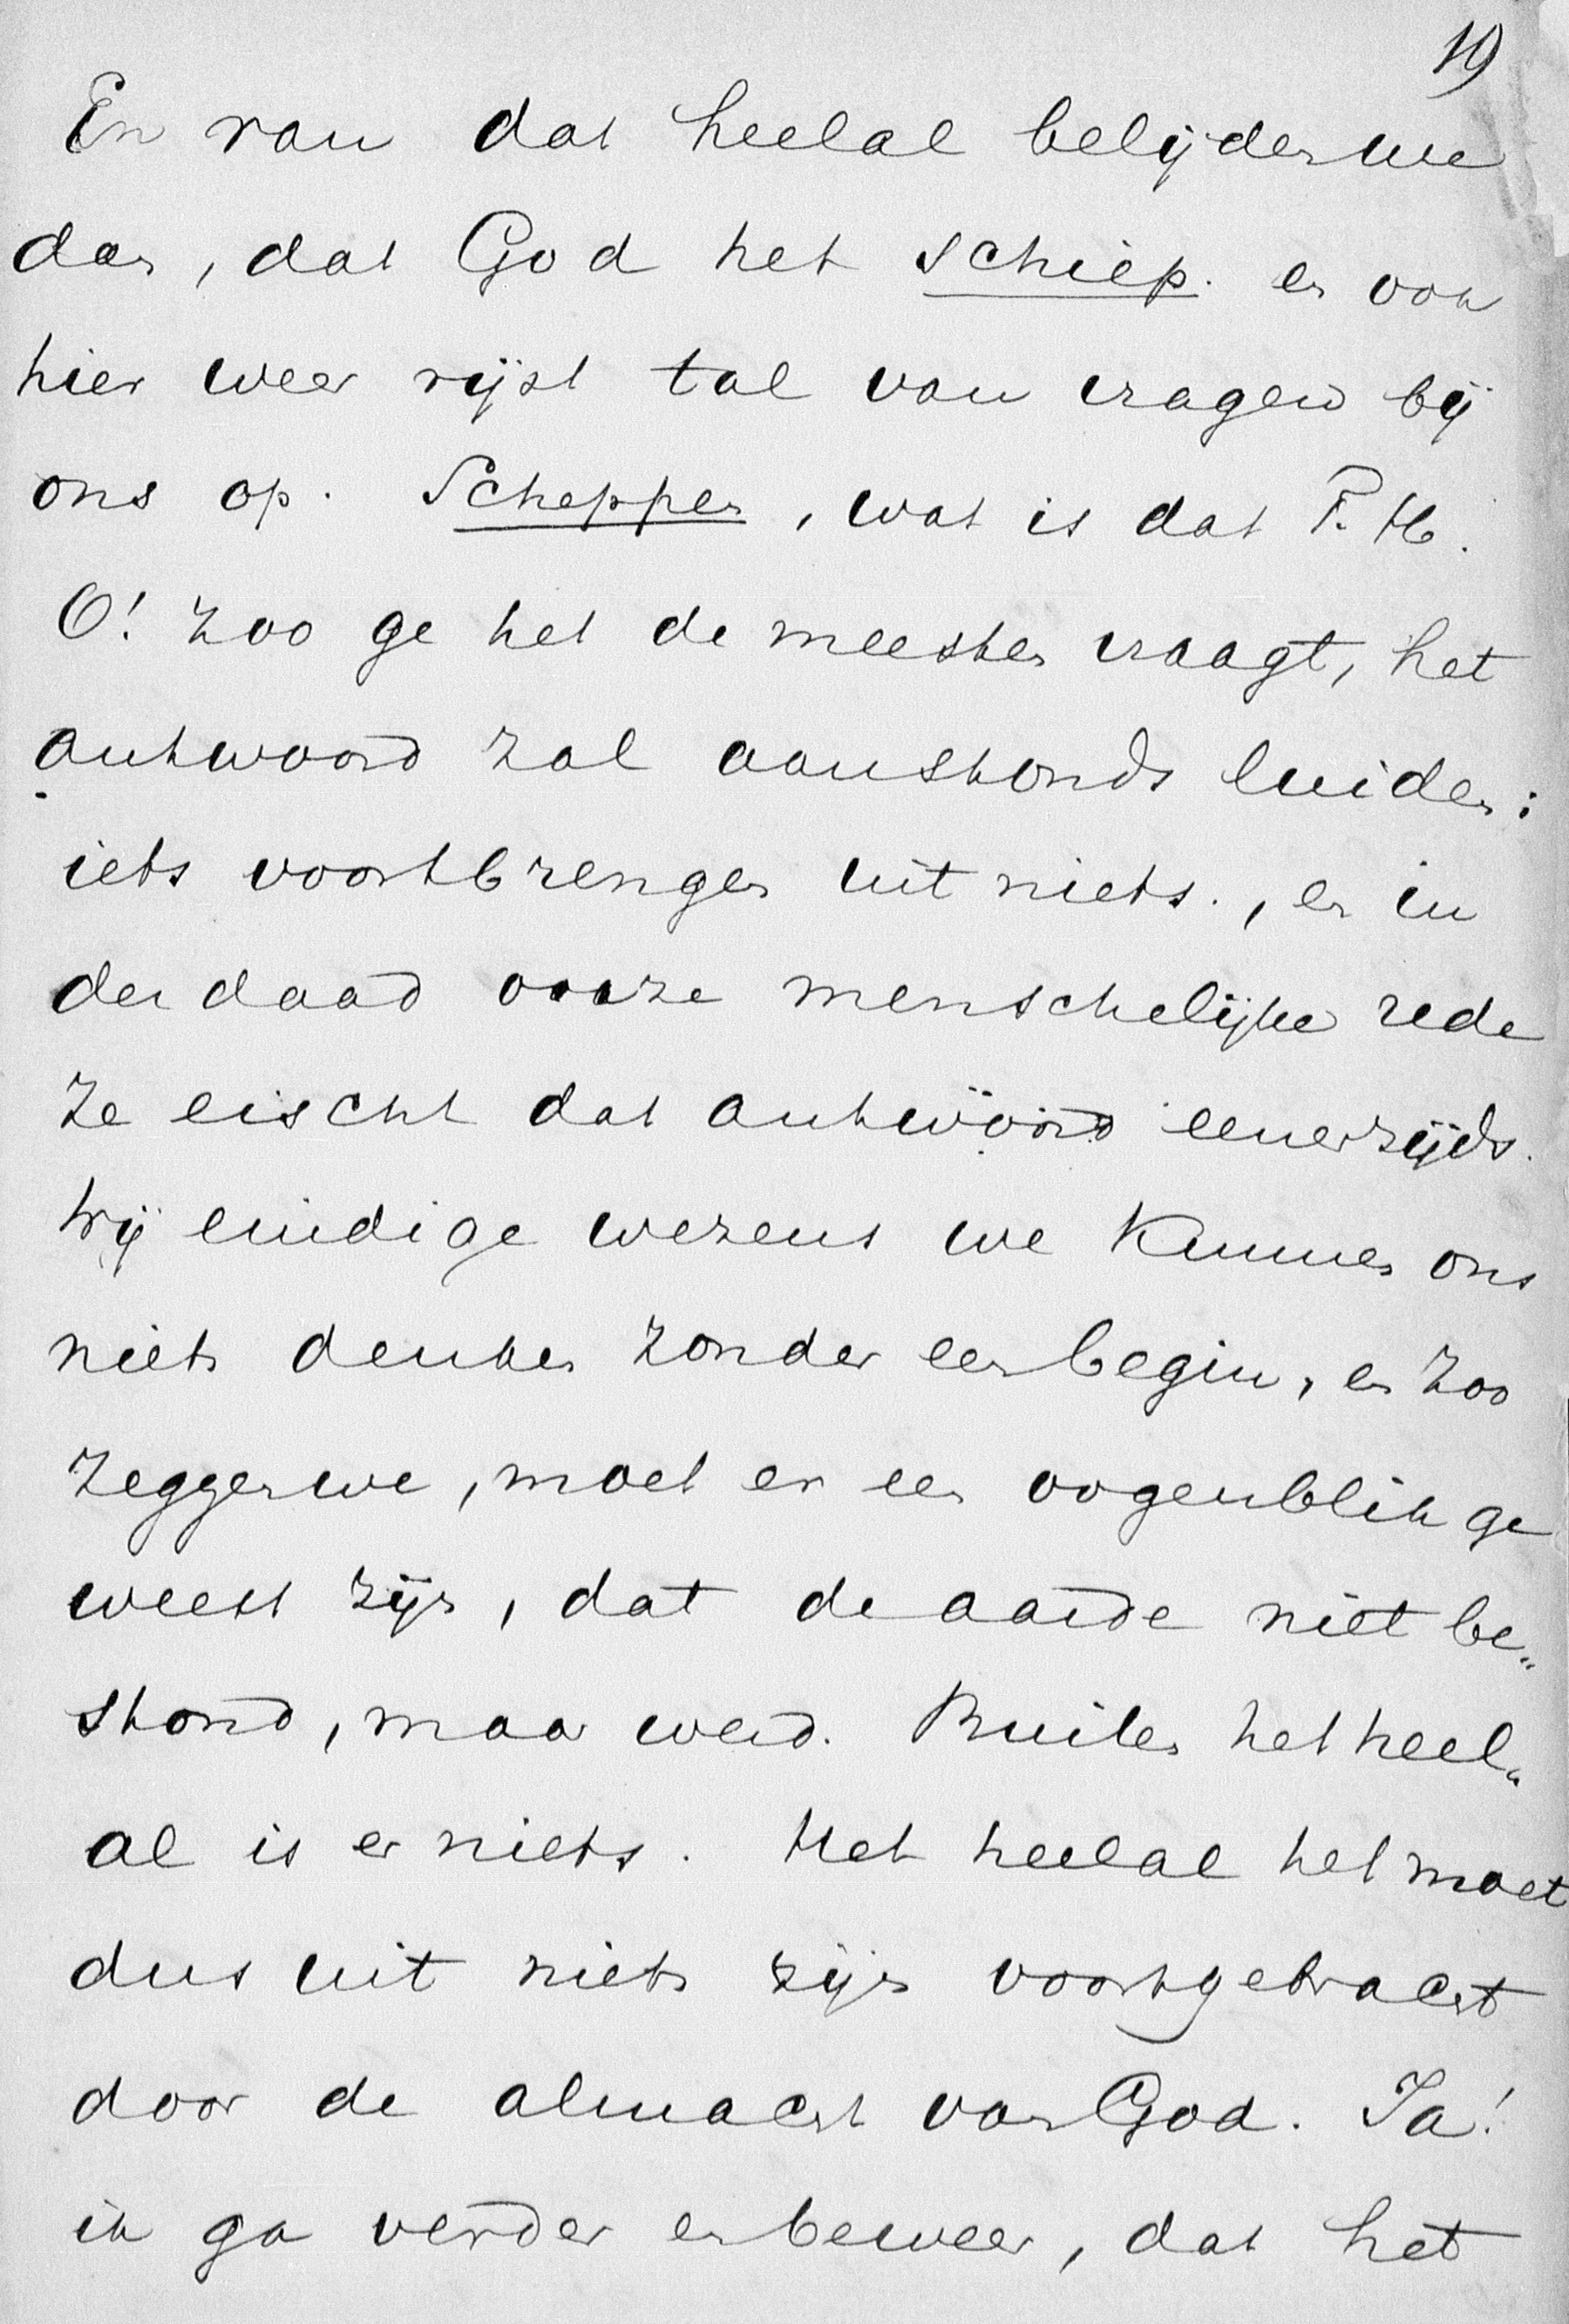 19
En van dat heelal belijden we
dan, dat God het schiep. en ook
hier weer rijst tal van vragen bij
ons op. Scheppen, wat is dat T. H.
O! zoo ge het de meesten vraagt, het
antwoord zal aanstonds luiden:
iets voortbrengen uit niets., en in
der daad onze menschelijke rede
ze eischt dat antwoord eenerzijds.
Wij eindige wezens we kunnen ons
niets denken zonder een begin, en zoo
zeggen we, moet er een oogenblik ge
weest zijn, dat de aarde niet be„
stond, maar werd. Buiten het heel„
al is er niets. Het heelal het moet
dus uit niets zijn voortgebracht
door de almacht van God. Ja!
ik ga verder en beweer, dat het